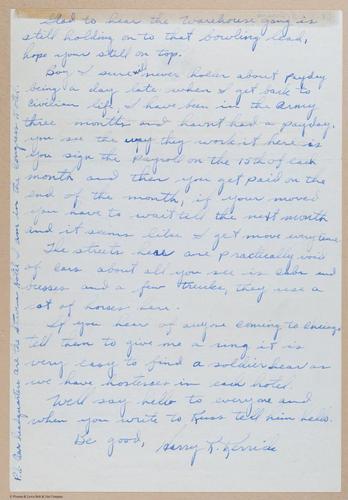 Glad to hear the warehouse gang is
still holding on to that bowling lead,
hope your still on top.
Boy I sure'll never holler about payday
being a day late when I get back to
civilian life, I have been in the Army
three months and havnt had a payday.
you see the way they work it here is
you sign the payroll on the 15th of each
month and then you get paid on the
end of the month, if your moved
you have to wait till the next month
and it seems like I get move everytime.
The streets here are practically void
of cars about all you see is cabs and
busses and a few trucks, they use a
lot of horses here.
If you hear of anyone coming to Chicago
tell them to give me a ring it is
very easy to find a soldier hear as
we have hostesses in each hotel.
Well say hello to everyone and
when you write to Russ tell him hello.
Be good, Harry R.
P.S. Our headquarters are the Stevens Hotel I am in the Congress Hotel.